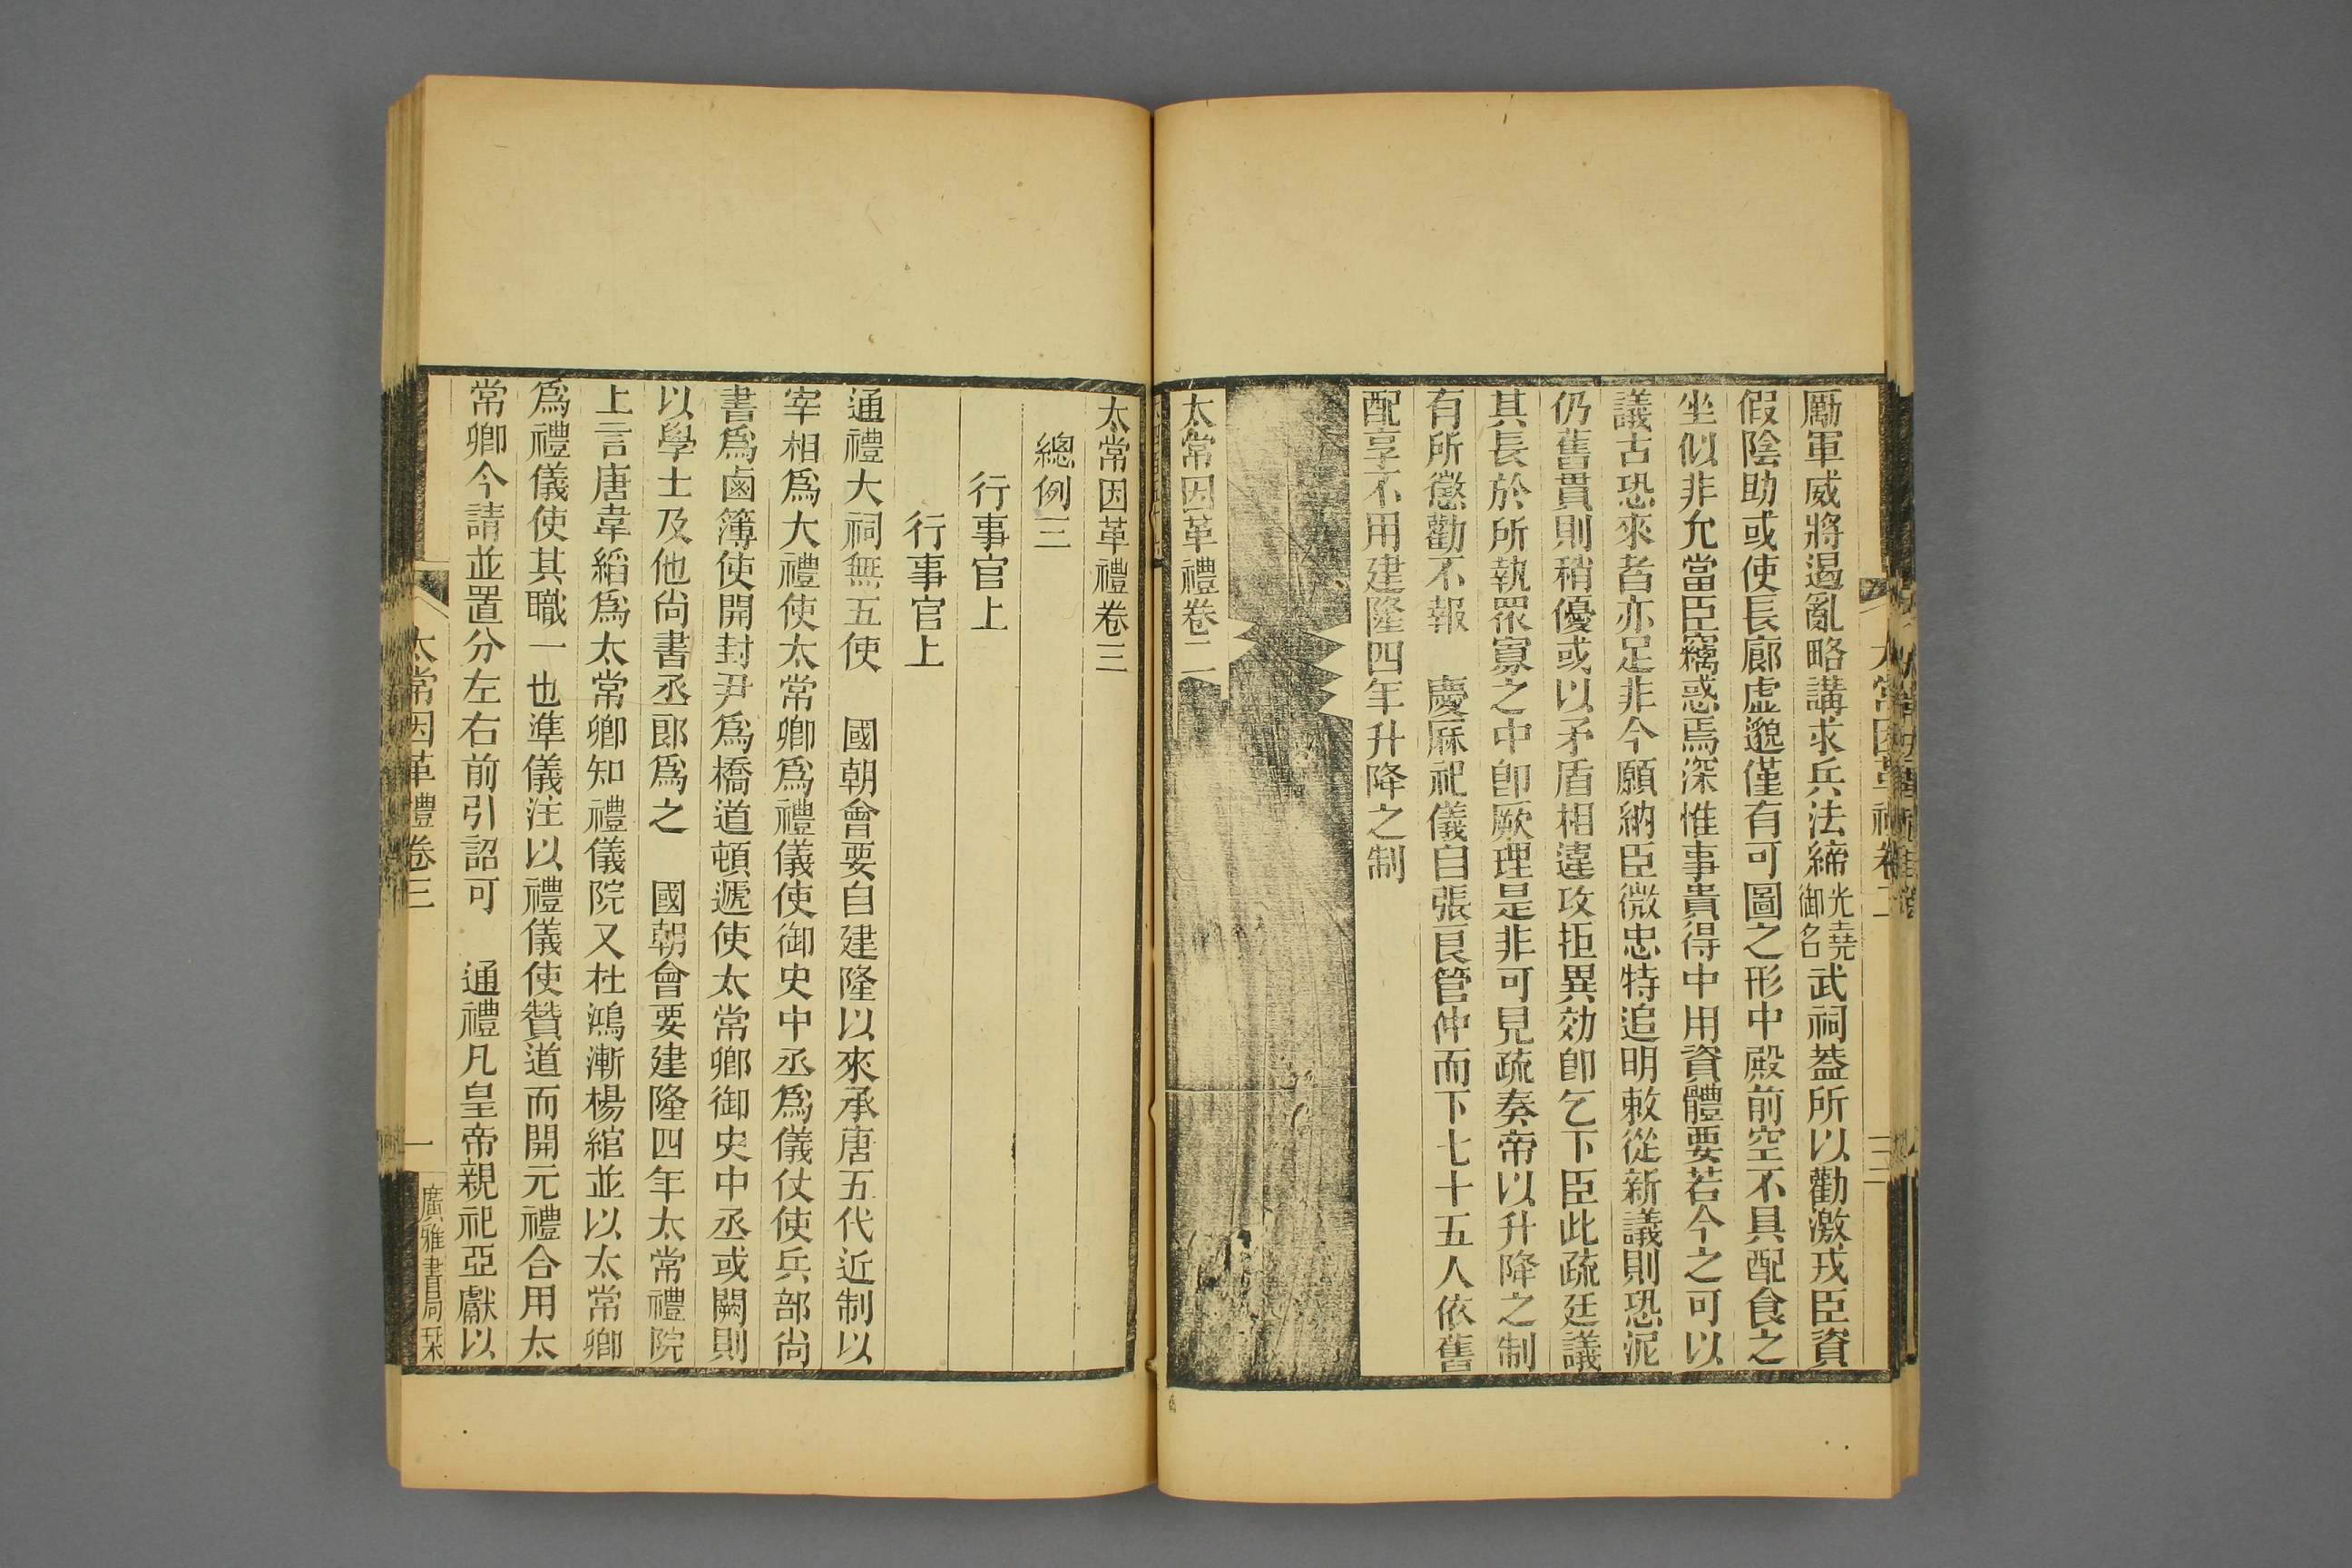 厲軍威將遏亂略講求兵法締光堯御名武祠葢所以勸激戎臣資
假陰助或使長廊虛邈僅有可圖之形中殿前空不具配食之
坐似非允當臣竊惑焉深惟事貴得中用資體要若今之可以
議古恐來者亦足非今願納臣微忠特追明敕從新議則恐泥
仍舊貫則稍優或以矛盾相違攻拒異効卽乞下臣此疏廷議
其長於所執眾寡之中卽厥理是非可見疏奏帝以升降之制
有所懲勸不報　慶厤祀儀自張良管仲而下七十五人依舊
配享不用建隆四年升降之制
太常因革禮卷二
太常因革禮卷三
總例三
行事官上
行事官上
通禮大祠無五使　國朝會要自建隆以來承唐五代近制以
宰相爲大禮使太常卿爲禮儀使御史中丞爲儀仗使兵部尚
書爲鹵簿使開封尹爲橋道頓遞使太常卿御史中丞或闕則
以學士及他尚書丞郎爲之　國朝會要建隆四年太常禮院
上言唐韋縚爲太常卿知禮儀院又杜鴻漸楊綰並以太常卿
爲禮儀使其職一也準儀注以禮儀使贊道而開元禮合用太
常卿今請並置分左右前引詔可　通禮凡皇帝親祀亞獻以
太常因革禮卷三
一
廣雅書局栞